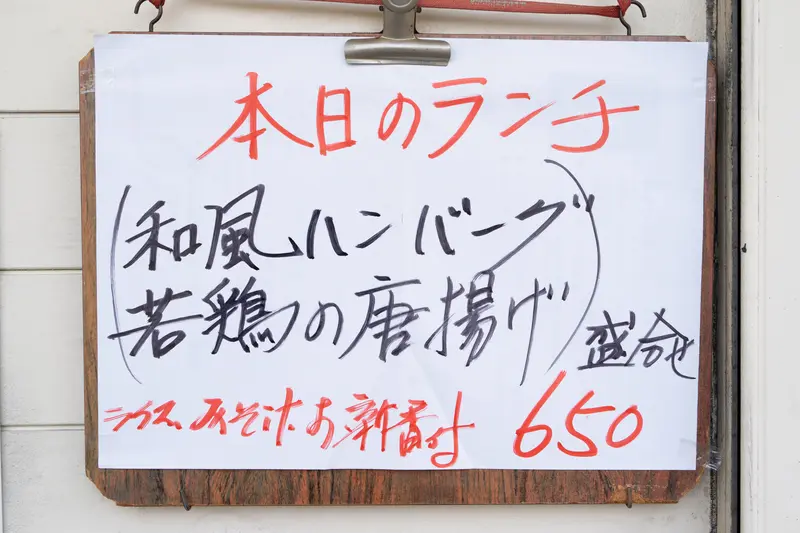 本日のランチ
和風ハンバーグ
若鶏の唐揚げ 盛合せ
ライス、みそ汁、お新香付 650